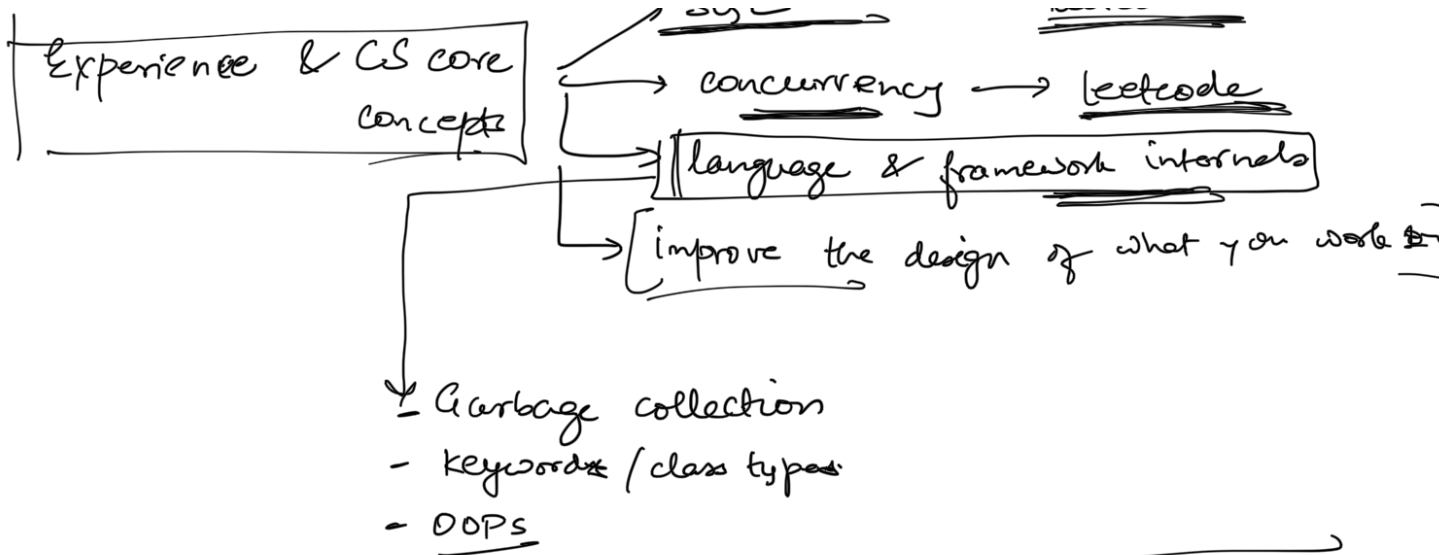 Experience & CS core
concepts
concurrency → leetcode
language & framework internals
improve the design of what you work on
- Garbage collection
- keywords / class types
- OOPs